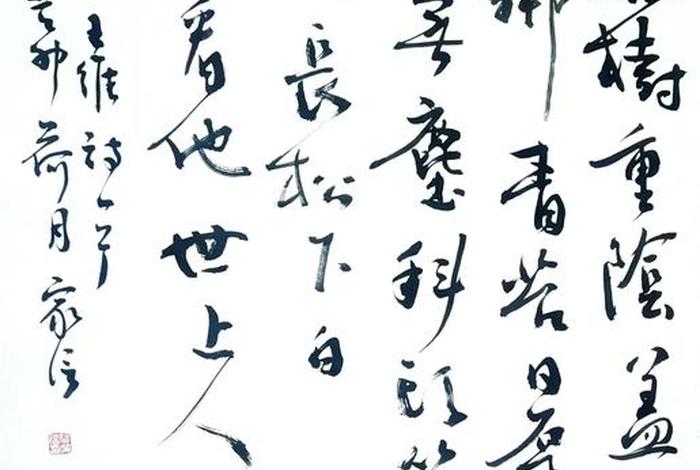 樹重陰蓋
鄰青苔日厚
無塵科頭箕
長松下白
看他世上人
王維詩一首
癸卯荷月家信